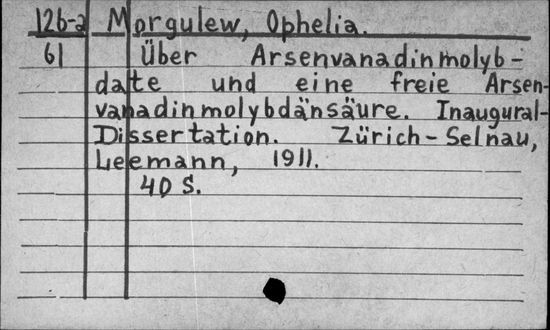 12b-a Morgulew, Ophelia.
61 Über Arsenvanadinmolyb-
date und eine freie Arsen-
vanadinmolybdänsäure. Inaugural-
Dissertation. Zürich-Selnau,
Leemann, 1911.
40 S.